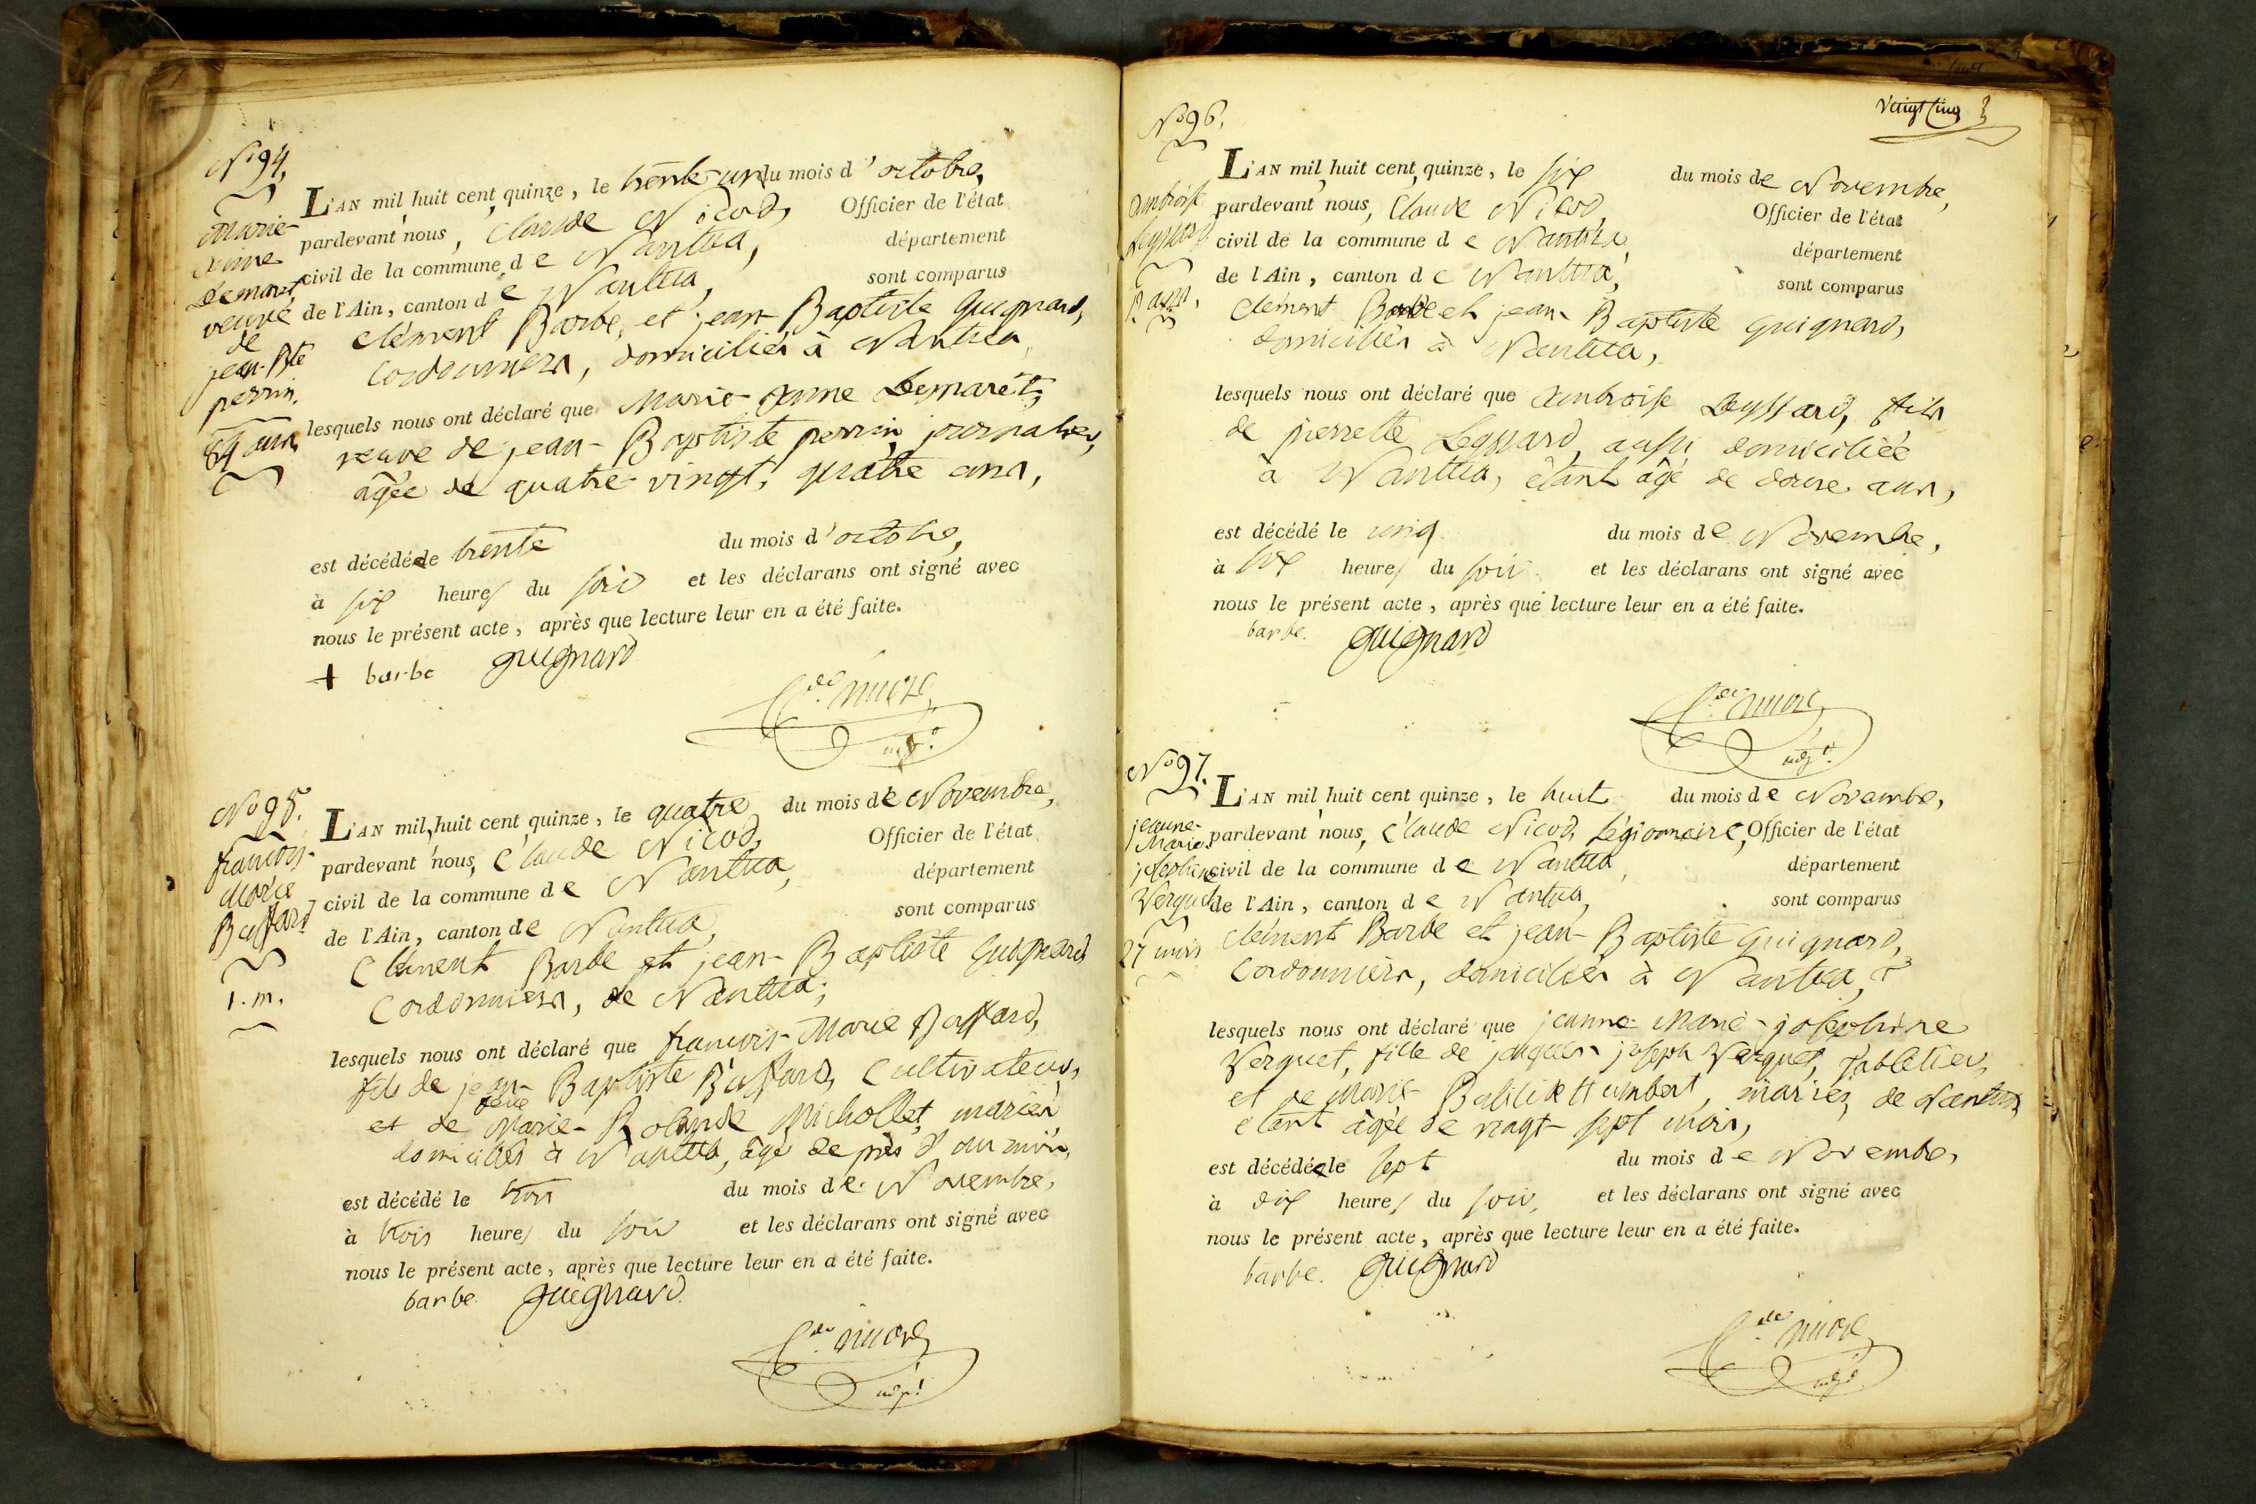 N.o 94.
Marie-
Anne
Demaret,
veuve
de
jean-Bte
perrin.
84 ans
L'AN mil huit cent quinze, le trente-un du mois d'octobre,
pardevant nous, Claude Nicod, Officier de l'état
civil de la commune de Nantua, département
de l'Ain, canton de Nantua, sont comparus
Clément Barbe, et jean-Baptiste Guignard,
Cordonniers, domiciliés à Nantua,
lesquels nous ont déclaré que Marie-Anne Demaret,
veuve de jean-Baptiste perrin, journalier,
âgée de quatre vingt, quatre ans,
est décédée le trente du mois d'octobre,
à six heures du soir et les déclarans ont signé avec
nous le présent acte, après que lecture leur en a été faite.
+ barbe guignard
adjt.
N.o 95.
françois-
Marie
Buffard
1. m.
L'AN mil huit cent quinze, le quatre du mois de Novembre,
pardevant nous, Claude Nicod, Officier de l'état
civil de la commune de Nantua, département
de l'Ain, canton de Nantua, sont comparus
Clément Barbe et jean-Baptiste Guignard
Cordonniers, de Nantua;
lesquels nous ont déclaré que françois-Marie Buffard,
fils de jean-Baptiste Buffard, Cultivateur,
et de Marie-Rolande Michollet, mariés,
domiciliés à Nantua, âgé de près d'un mois,
est décédé le trois du mois de Novembre,
à trois heures du soir et les déclarans ont signé avec
nous le présent acte, après que lecture leur en a été faite.
barbe guignard
adjt.
Vingt Cinq
N.o 96.
Ambroise
Leyssard
12 ans.
L'AN mil huit cent quinze, le six du mois de Novembre,
pardevant nous, Claude Nicod, Officier de l'état
civil de la commune de Nantua département
de l'Ain, canton de Nantua, sont comparus
Clément Barbe et jean-Baptiste Guignard,
domiciliés à Nantua,
lesquels nous ont déclaré que Ambroise Leyssard, fils
de pierrette Leyssard, aussi domiciliée
à Nantua, étant âgé de douze ans,
est décédé le cinq du mois de Novembre,
à six heures du soir et les déclarans ont signé avec
nous le présent acte, après que lecture leur en a été faite.
barbe. guignard
adjt.
N.o 97.
jeanne-
Marie-
josephine
Verguet
27 mois
L'AN mil huit cent quinze, le huit du mois de Novembre,
pardevant nous, Claude Nicod, Légionnaire, Officier de l'état
civil de la commune de Nantua, département
de l'Ain, canton de Nantua, sont comparus
Clément Barbe et jean-Baptiste Guignard,
Cordonniers, domiciliés à Nantua,
lesquels nous ont déclaré que jeanne-Marie-josephine
Verguet, fille de jacques joseph Verguet, Tabletier,
et de Marie Humbert, mariés, de Nantua,
étant âgée de vingt-sept mois,
est décédée le sept du mois de Novembre,
à dix heures du soir, et les déclarans ont signé avec
nous le présent acte, après que lecture leur en a été faite.
barbe. guignard
adjt.